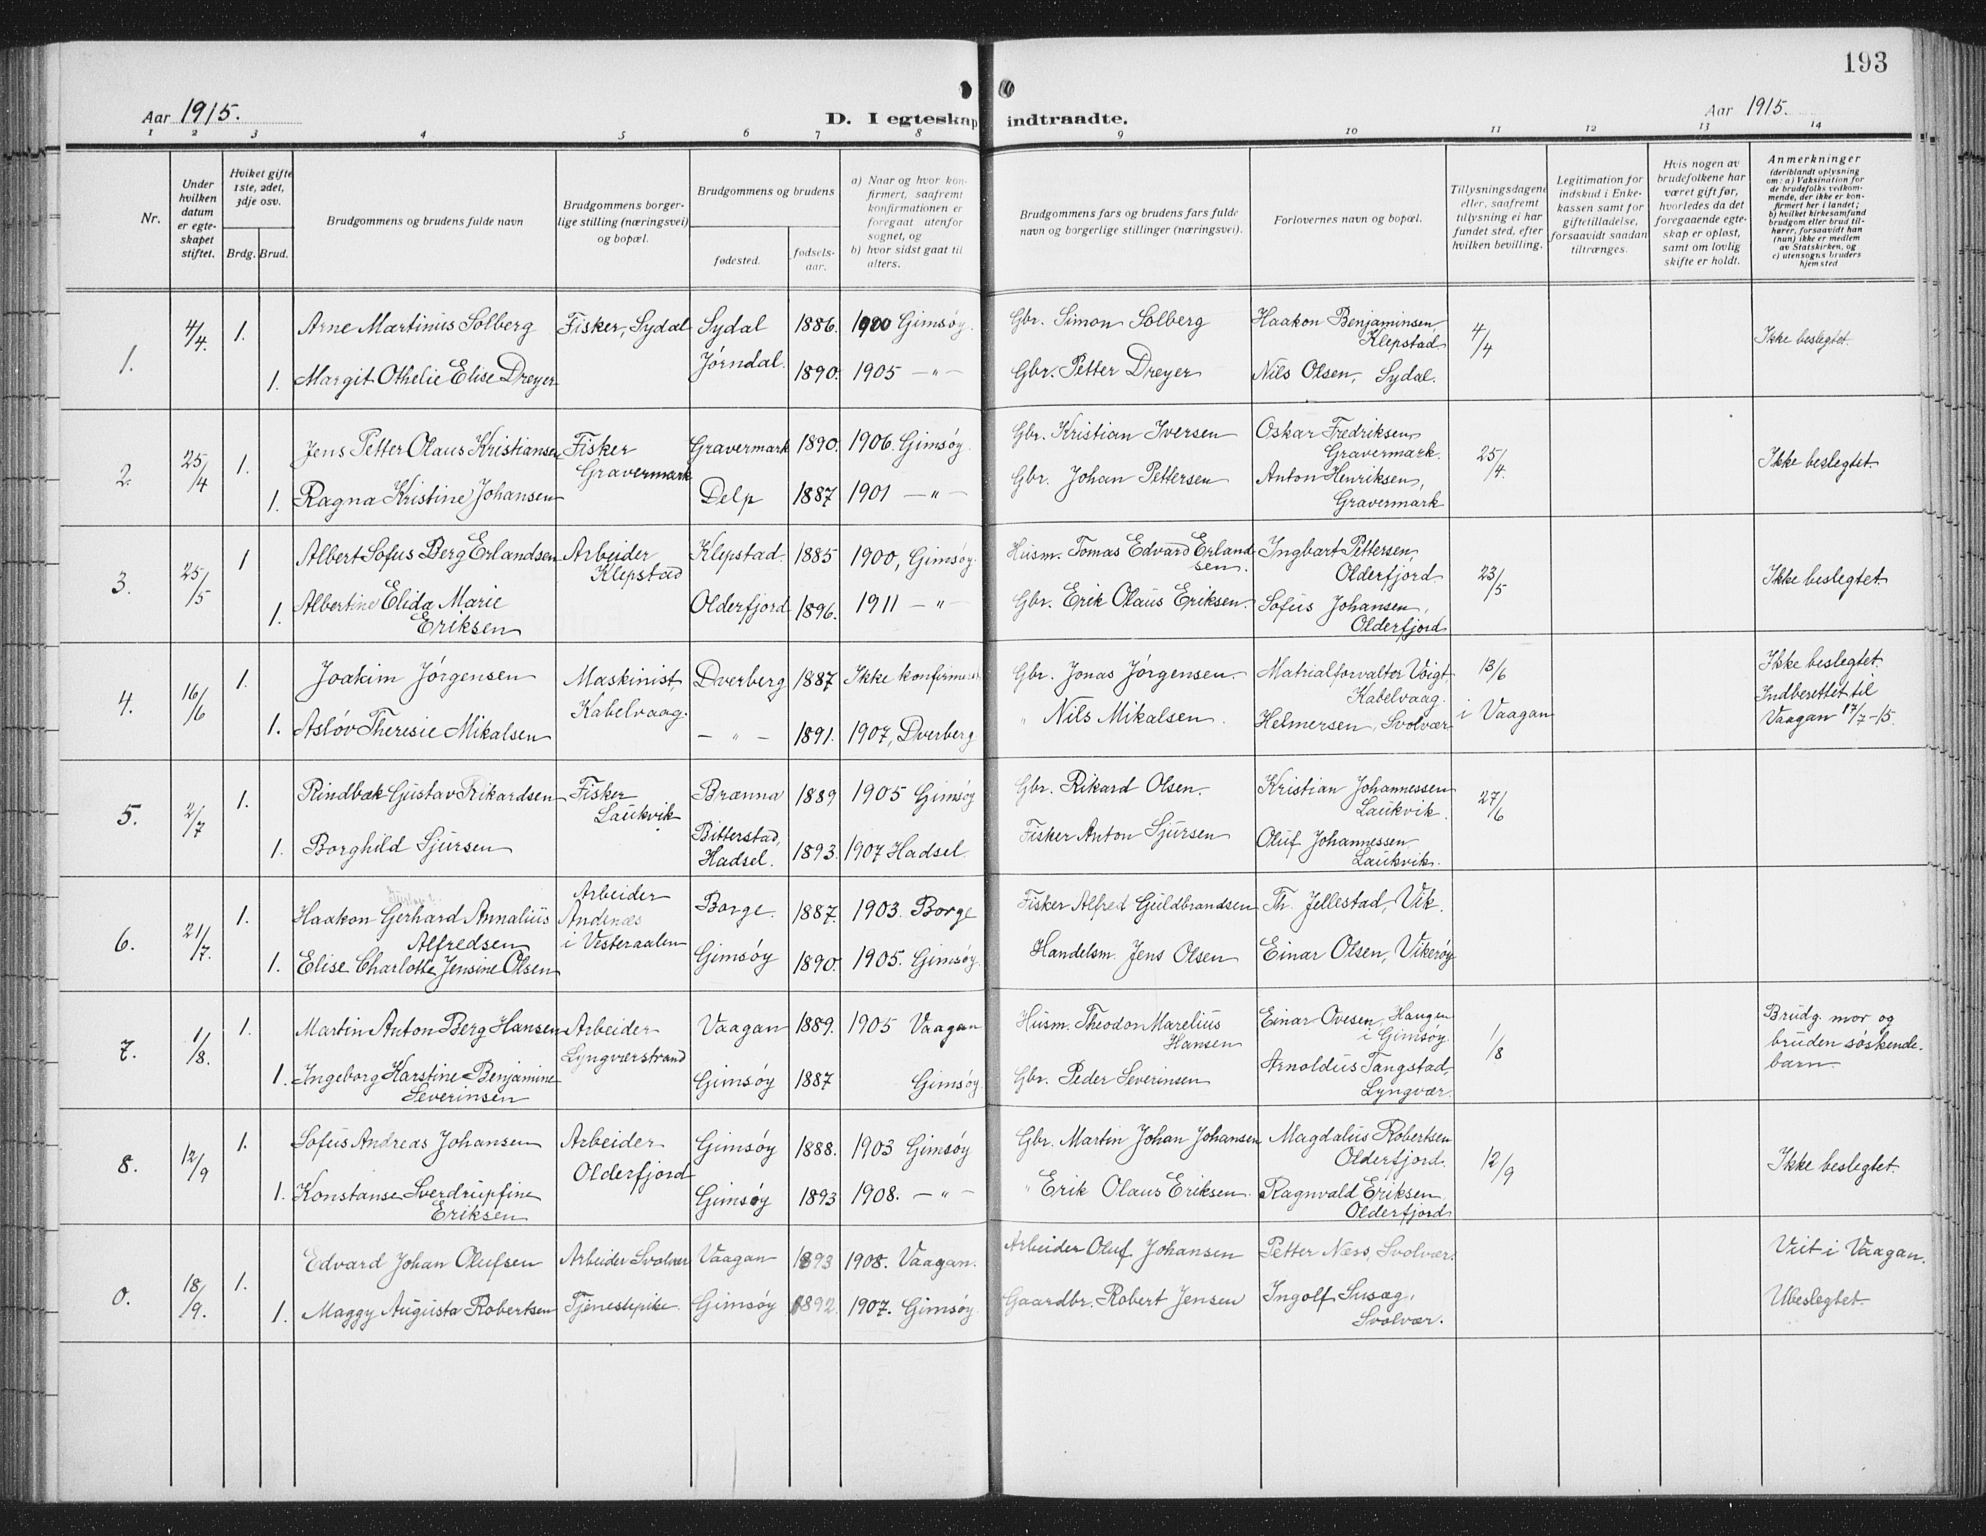 193
Aar 1915.
D. I egteskap indtraadte.
Aar 1915.
1 2 3 4 5 6 7 8 9 10 11 12 13 14
Nr.
Under hvilken datum er egteskapet stiftet.
Hviket gifte 1ste, 2det, 3dje osv.
Brdg. Brud.
Brudgommens og brudens fulde navn
Brudgommens borgerlige stilling (næringsvei) og bopæl.
Brudgommens og brudens
fødested.
fødselsaar.
a) Naar og hvor konfirmert, saafremt konfirmationen er foregaat utenfor sognet, og
b) hvor sidst gaat til alters.
Brudgommens fars og brudens fars fulde navn og borgerlige stillinger (næringsvei).
Forlovernes navn og bopæl.
Tillysningsdagene eller, saafremt tillysning ei har fundet sted, efter hvilken bevilling.
Legitimation for indskud i Enkekassen samt for giftetilladelse, forsaavidt saadan tiltrænges.
Hvis nogen av brudefolkene har været gift før, hvorledes da det foregaaende egteskap er opløst, samt om lovlig skifte er holdt.
Anmerkninger (deriblandt oplysning om: a) Vaksination for de brudefolks vedkommende, der ikke er konfirmert her i landet; b) hvilket kirkesamfund brudgom eller brud tilhører, forsaavidt han (hun) ikke er medlem av Statskirken, og c) utensogns bruders hjemsted
1. 4/4. 1. Arne Martinus Solberg Fisker, Sydal Sydal 1886. 1900 Gimsöy. Gbr. Simon Solberg Haakon Benjaminsen, Klepstad 4/4 Ikke beslegtet.
1. Margit Othelie Elise Dreyer Jørndal. 1890. 1905 —"— Gbr. Petter Dreyer Nils Olsen, Sydal.
2. 25/4 1. Jens Petter Olaus Kristiansen Fisker Gravermark Gravermark 1890. 1906. Gimsöy. Gbr. Kristian Iversen Oskar Fredriksen, Gravermark. 25/4. Ikke beslegtet.
1. Ragna Kristine Johansen Delp 1887 1901 —"— Gbr. Johan Pettersen Anton Henriksen, Gravermark
3. 25/5 1 Albert Sofus Berg Erlandsen Arbeider Klepstad Klepstad. 1885 1900, Gimsöy. Husm. Tomas Edvard Erlandsen. Ingbart Pettersen, Olderfjord 23/5 Ikke beslegtet
1. Albertine Elida Marie Eriksen Olderfjord 1896. 1911 —"— Gbr. Erik Olaus Eriksen. Sofus Johansen, Olderfjord
4. 16/6 1. Joakim Jørgensen Maskinist, Kabelvaag. Dverberg 1887 Ikke konfirmert Gbr. Jonas Jørgensen. Matrialforvalter Voigt Kabelvaag. 13/6 i Vaagan Ikke beslegtet. Indberettet til Vaagan 17/7-15.
1. Asløv Theresie Mikalsen —"— 1891. 1907, Dverberg " Nils Mikalsen. Helmersen, Svolvær
5. 2/7 1. Rindbæk Gustav Rikardsen Fisker Laukvik Brænna 1889 1905 Gimsöy Gbr. Rikard Olsen. Kristian Johannessen Laukvik. 27/6
1. Borghild Sjursen Bitterstad, Hadsel. 1893. 1907 Hadsel. Fisker Anton Sjursen Oluf Johannessen Laukvik.
6. 21/7. 1. Haakon Gerhard Annalius Alfredsen Arbeider Andenæs i Vesteraalen Borge. 1887. 1903. Borge Fisker Alfred Guldbrandsen Th. Jellestad, Vik.
1. Elise Charlotte Jensine Olsen Gimsöy 1890. 1905. Gimsöy. Handelsm. Jens Olsen Einar Olsen, Vikerøy
7. 1/8. 1. Martin Anton Berg Hansen Arbeider Lyngværstrand Vaagan 1889. 1905 Vaagan Husm. Theodon Marelius Hansen Einar Ovesen, Haugen i Gimsöy 1/8 Brudg. mor og bruden søskendebarn.
1. Ingeborg Karstine Benjamine Severinsen Gimsöy 1887 Gimsöy. Gbr. Peder Severinsen Arnoldus Tangstad, Lyngvær.
8. 12/9 1. Sofus Andreas Johansen Arbeider Olderfjord Gimsöy 1888. 1903 Gimsöy Gbr. Martin Johan Johansen Magdalus Robertsen Olderfjord. 12/9 Ikke beslegtet.
1. Konstanse Sverdrupfine Eriksen Gimsöy 1893 1908. —"— " Erik Olaus Eriksen. Ragnvald Eriksen, Olderfjord
0. 18/9. 1. Edvard Johan Olufsen Arbeider Svolvær Vaagan 1893 1908. Vaagan. Arbeider Oluf Johansen Petter Næss, Svolvær. Viet i Vaagan.
1. Maggy Augusta Robertsen Tjenestepike. Gimsöy 1892. 1907. Gimsöy. Gaardbr. Robert Jensen Ingolf Susag, Svolvær. Ubeslegtet.